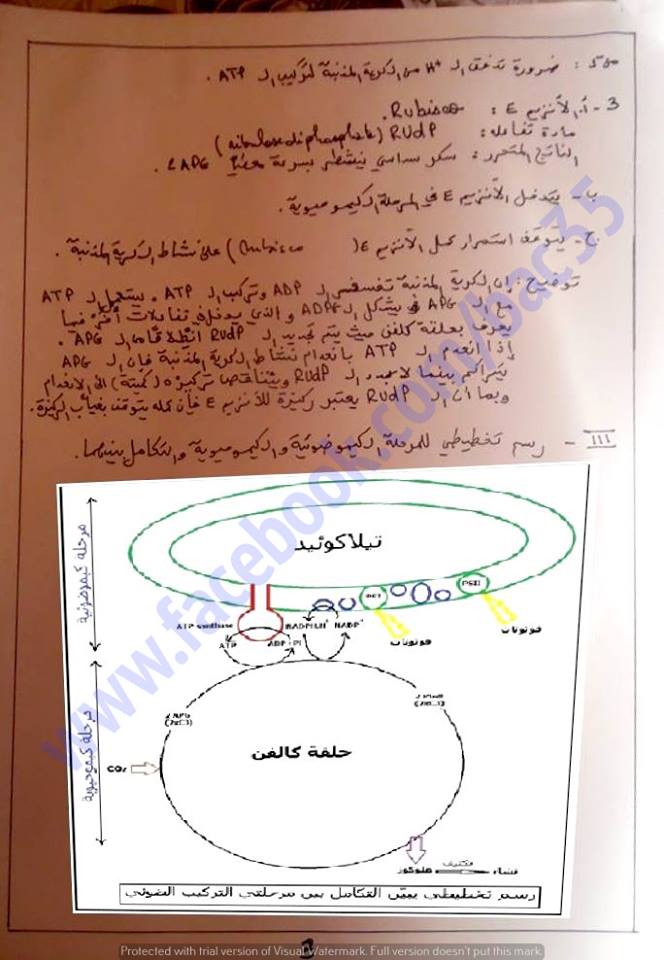 ضرورة تدفق الـ H+ من الكرية المذنبة لتركيب الـ ATP .
3 - أ. الأنزيم E : Rubisco.
مادة تفاعله: RUdP (ribulose diphosphate)
الناتج المتحرر: سكر سداسي ينشطر بسرعة معطيا 2APG .
ب - يتدخل الأنزيم E في المرحلة الكيموحيوية.
ج - يتوقف استمرار عمل الأنزيم E (Rubisco) على نشاط الكرية المذنبة .
توضيح: إن الكرية المذنبة تفسفر الـ ADP وتركب الـ ATP . يستعمل الـ ATP
مع الـ APG في تشكل الـ ADPG والذي يدخل في تفاعلات أخرى فيما
يعرف بحلقة كالفن حيث يتم تجديد الـ RUdP انطلاقا من الـ APG .
إذا انعدم الـ ATP بانعدام نشاط الكرية المذنبة فإن الـ APG
يتراكم بينما لا يتجدد الـ RUdP ويتناقص تركيزه (كميته) إلى الانعدام
وبما أن الـ RUdP يعتبر ركيزة للأنزيم E فإن عمله يتوقف بغياب الركيزة.
III - رسم تخطيطي للمرحلة الكيموضوئية والكيموحيوية والتكامل بينهما.
مرحلة كيموضوئية
تيلاكوئيد
PSII
فوتونات
فوتونات
ATP synthase
NADPH,H+ NADP+
ATP
ADP+Pi
مرحلة كيموحيوية
2 APG
حلقة كالفن
CO2
غلوكوز
تكثيف
نشاء
رسم تخطيطي يبين التكامل بين مرحلتي التركيب الضوئي
www.facebook.com/bac35
3
Protected with trial version of Visual Watermark. Full version doesn't put this mark.